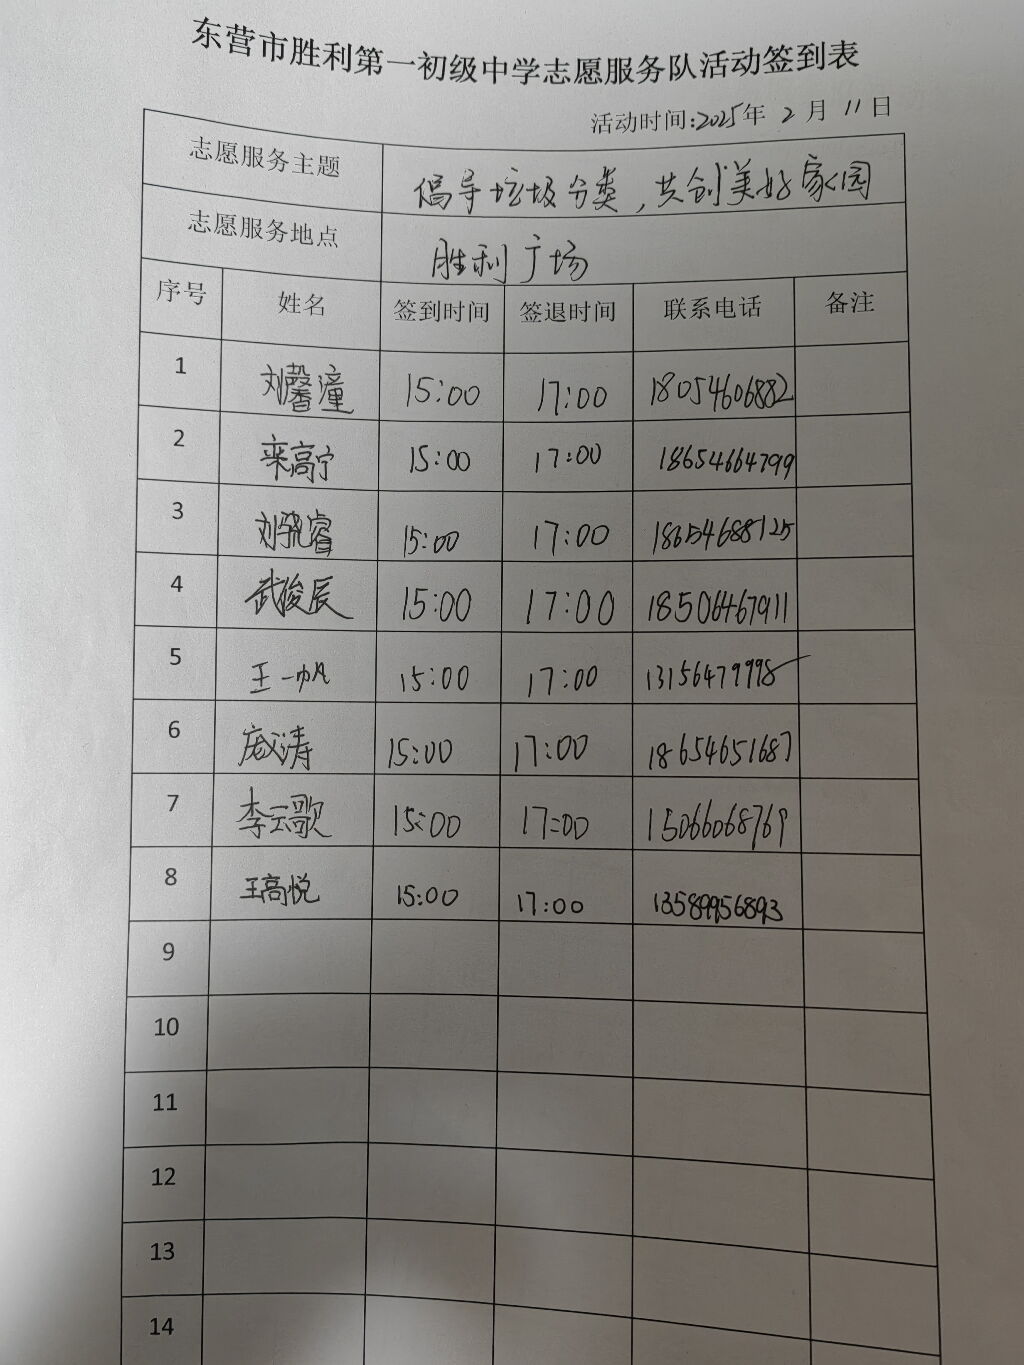 东营市胜利第一初级中学志愿服务队活动签到表
活动时间:2025年 2 月 11 日
志愿服务主题 倡导垃圾分类,共创美好家园
志愿服务地点 胜利广场
序号 姓名 签到时间 签退时间 联系电话 备注
1 刘馨潼 15:00 17:00 18054606882
2 栾高宁 15:00 17:00 18654664799
3 刘骁睿 15:00 17:00 18654688125
4 武俊辰 15:00 17:00 18506467911
5 王一帆 15:00 17:00 13156479998
6 涛 15:00 17:00 18654651687
7 李云歌 15:00 17:00 15066068769
8 王高悦 15:00 17:00 13589956893
9
10
11
12
13
14